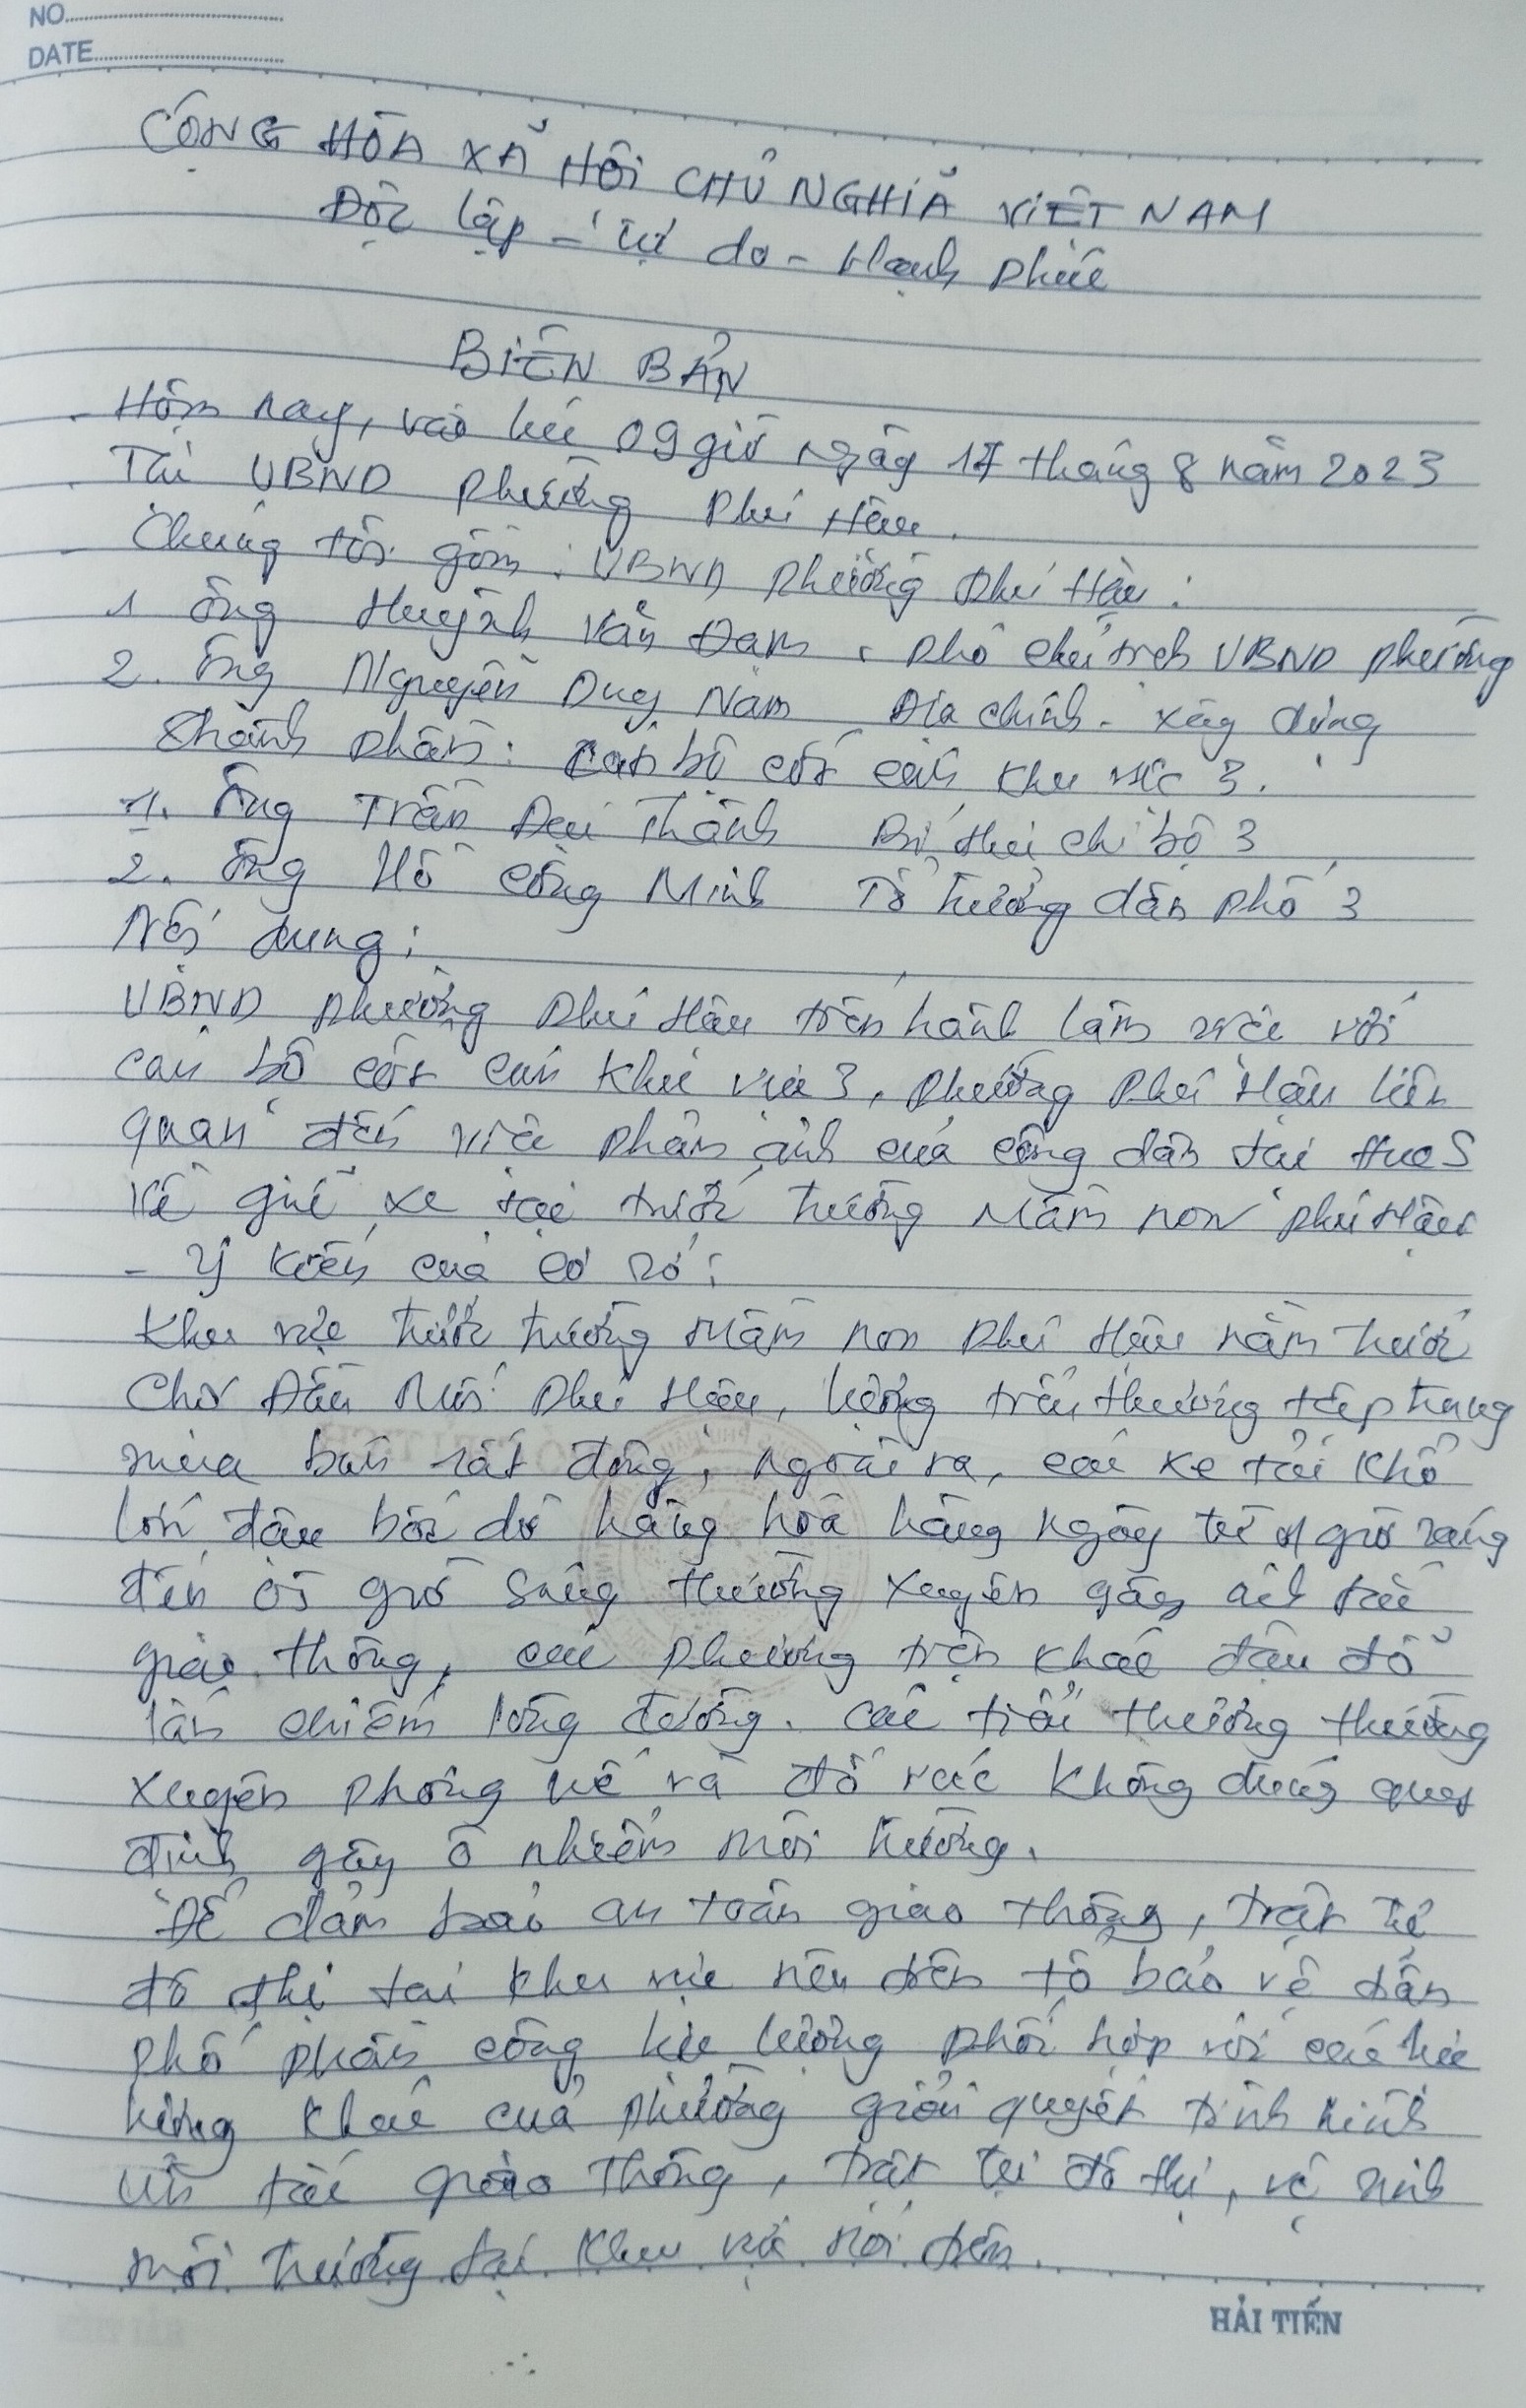 NO
DATE
CỘNG HÒA XÃ HỘI CHỦ NGHĨA VIỆT NAM
Độc lập - Tự do - Hạnh phúc
BIÊN BẢN
- Hôm nay, vào lúc 09 giờ ngày 17 tháng 8 năm 2023
. Tại UBND phường Phú Hậu.
- Chúng tôi gồm: UBND phường Phú Hậu:
1 Ông Huỳnh Văn Đam, Phó chủ tịch UBND phường
2. Ông Nguyễn Duy Nam Địa chính - xây dựng
Thành phần: Cán bộ cốt cán khu vực 3.
1. Ông Trần Đại Thành Bí thư chi bộ 3
2. Ông Hồ Công Minh Tổ trưởng dân phố 3
Nội dung:
UBND phường Phú Hậu tiến hành làm việc với
cán bộ cốt cán khu vực 3, phường Phú Hậu liên
quan đến việc phản ánh của công dân tại HueS
về giữ xe tại trước trường Mầm non Phú Hậu
- Ý kiến của cơ sở:
Khu vực trước trường Mầm non Phú Hậu nằm trước
Chợ Đầu Mối Phú Hậu, lượng tiểu thương tập trung
mua bán rất đông, ngoài ra, các xe tải khổ
lớn đậu bốc dỡ hàng hóa hàng ngày từ giờ sáng
đến 05 giờ sáng thường xuyên gây ách tắc
giao thông, các phương tiện khác đậu đỗ
lấn chiếm lòng đường. Các tiểu thương thường
xuyên phóng uế và đổ rác không đúng quy
định gây ô nhiễm môi trường.
Để đảm bảo an toàn giao thông, trật tự
đô thị tại khu vực nêu trên tổ bảo vệ dân
phố phân công lực lượng phối hợp với các lực
lượng khác của phường giải quyết tình hình
ùn tắc giao thông, trật tự đô thị, vệ sinh
môi trường tại khu vực nói trên.
HẢI TIẾN